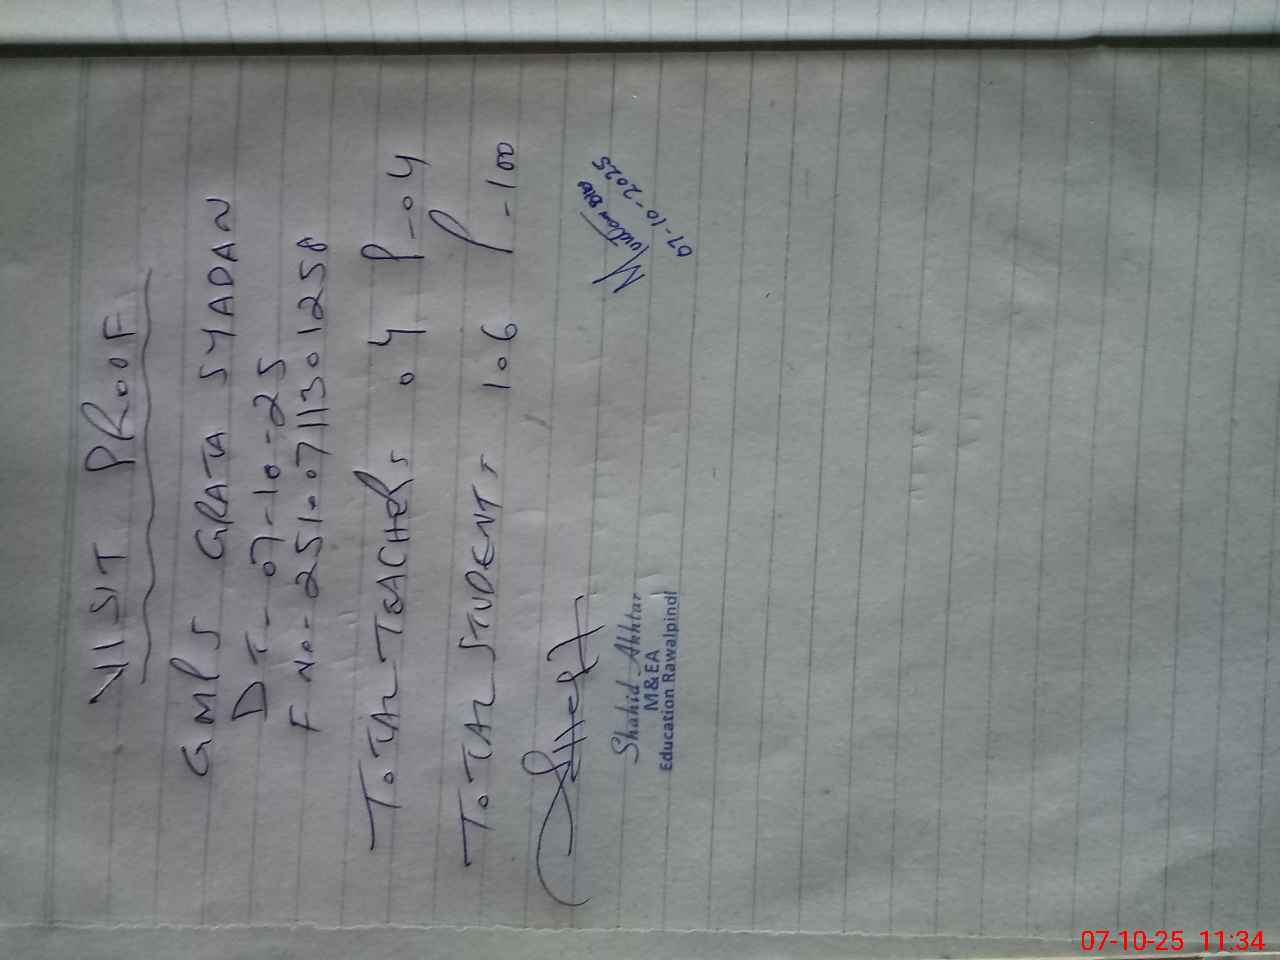 VISIT PROOF
GMPS GRATA SYADAN
DT - 07-10-25
F No- 2510071301258
TOTAL TEACHERS 04 P-04
TOTAL STUDENTS 106 P-100
07-10-2025
Shahid Akhtar
M&EA
Education Rawalpindi
07-10-25 11:34